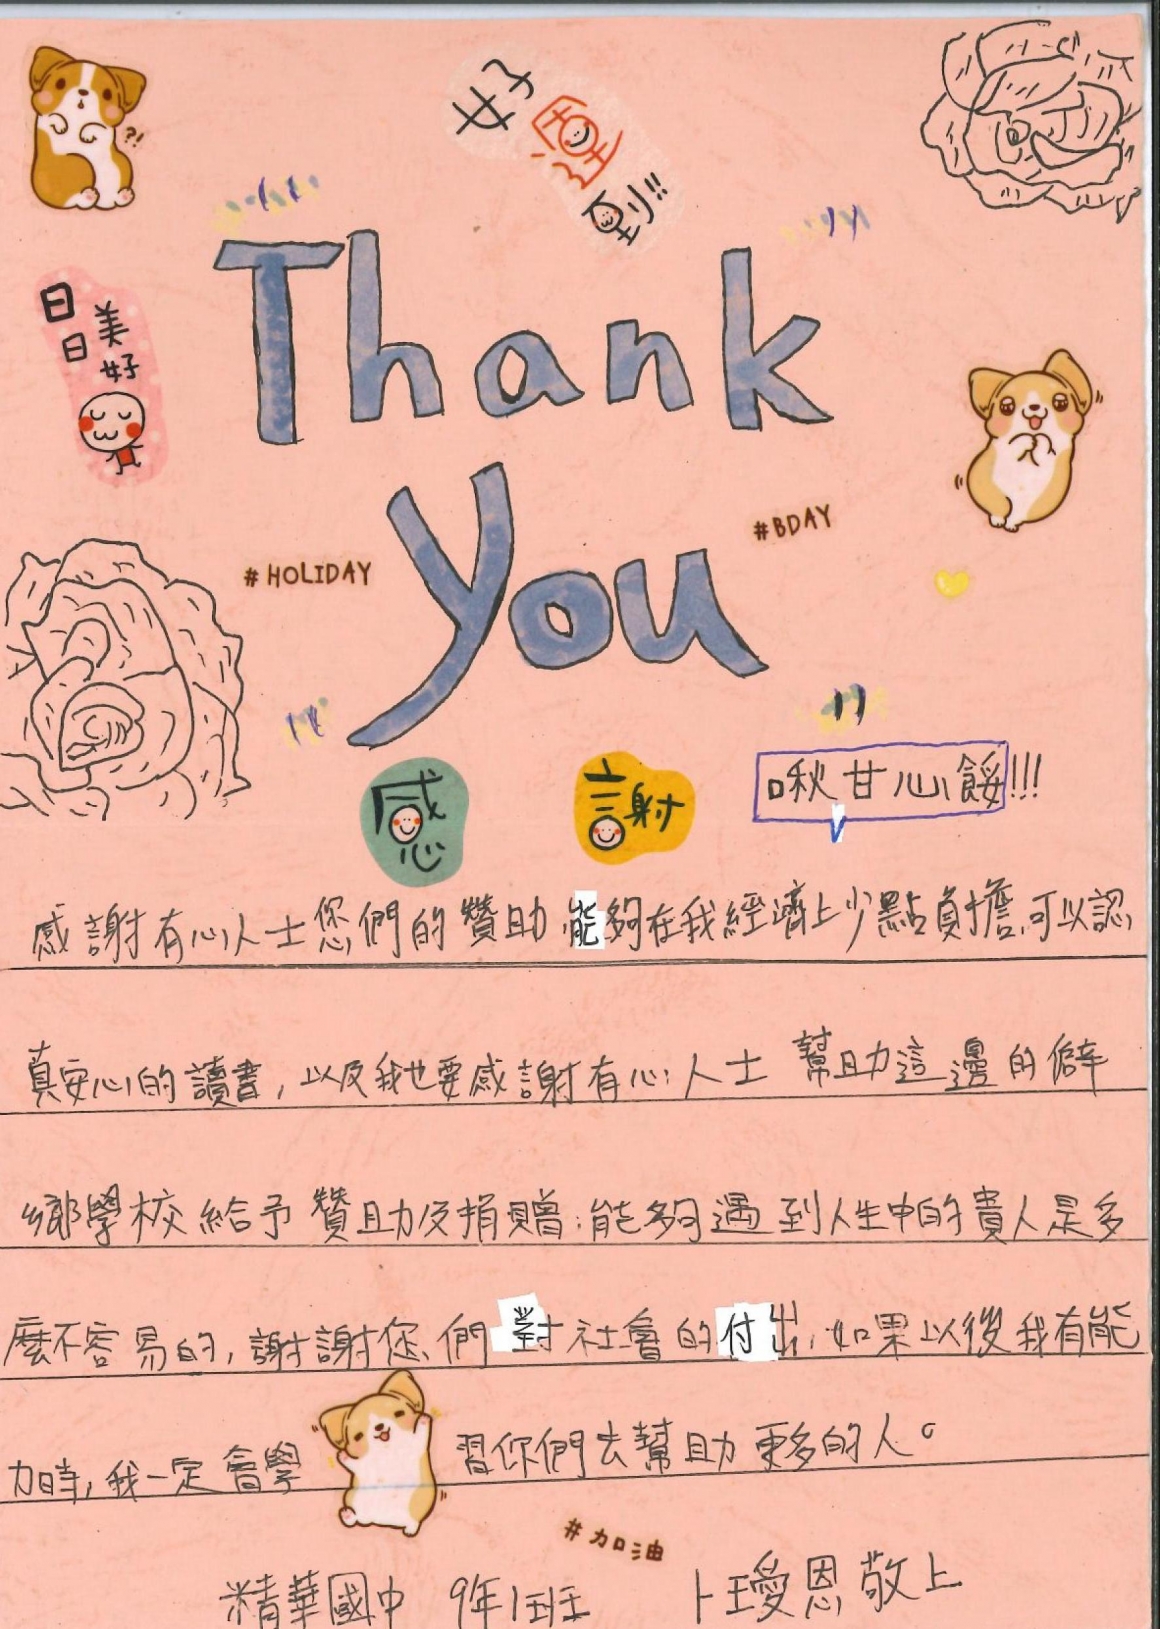 好運到!!
日日美好
Thank
#BDAY
You
#HOLIDAY
感謝
啾甘心餒!!!
感謝有心人士您們的贊助,能夠在我經濟上少點負擔,可以認
真安心的讀書,以及我也要感謝有心人士幫助這邊的僻
鄉學校給予贊助及捐贈,能夠遇到人生中的貴人是多
麼不容易的,謝謝您們對社會的付出,如果以後我有能
力時,我一定會學習你們去幫助更多的人。
#加油
精華國中 9年1班 卜璦恩敬上